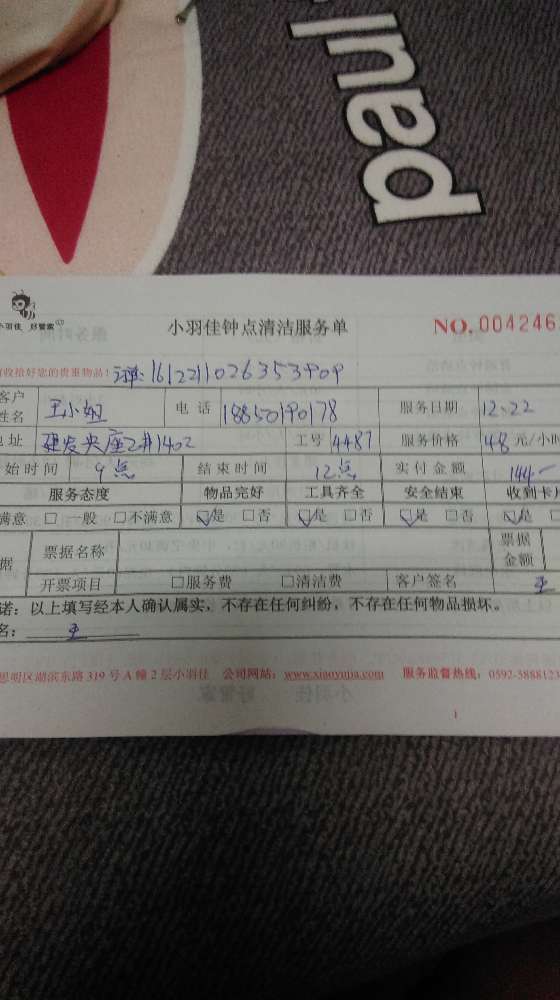 paul
小羽佳 好管家
小羽佳钟点清洁服务单
NO. 004246
收拾好您的贵重物品! 订单: 1612211026353909
客户姓名 王小姐 电话 18850190178 服务日期 12.22
地址 建发央座2#1402 工号 4487 服务价格 48 元/小时
始时间 9点 结束时间 12点 实付金额 144.—
服务态度 物品完好 工具齐全 安全结束 收到卡
满意 □ 一般 □不满意 ☑是 □否 ☑是 □否 ☑是 □否 ☑是 □
据 票据名称 票据金额
开票项目 □服务费 □清洁费 客户签名 王
诺：以上填写经本人确认属实，不存在任何纠纷，不存在任何物品损坏。
名： 王
思明区湖滨东路 319 号 A 幢 2 层小羽佳 公司网站：www.xiaoyujia.com 服务监督热线：0592-5888123
1